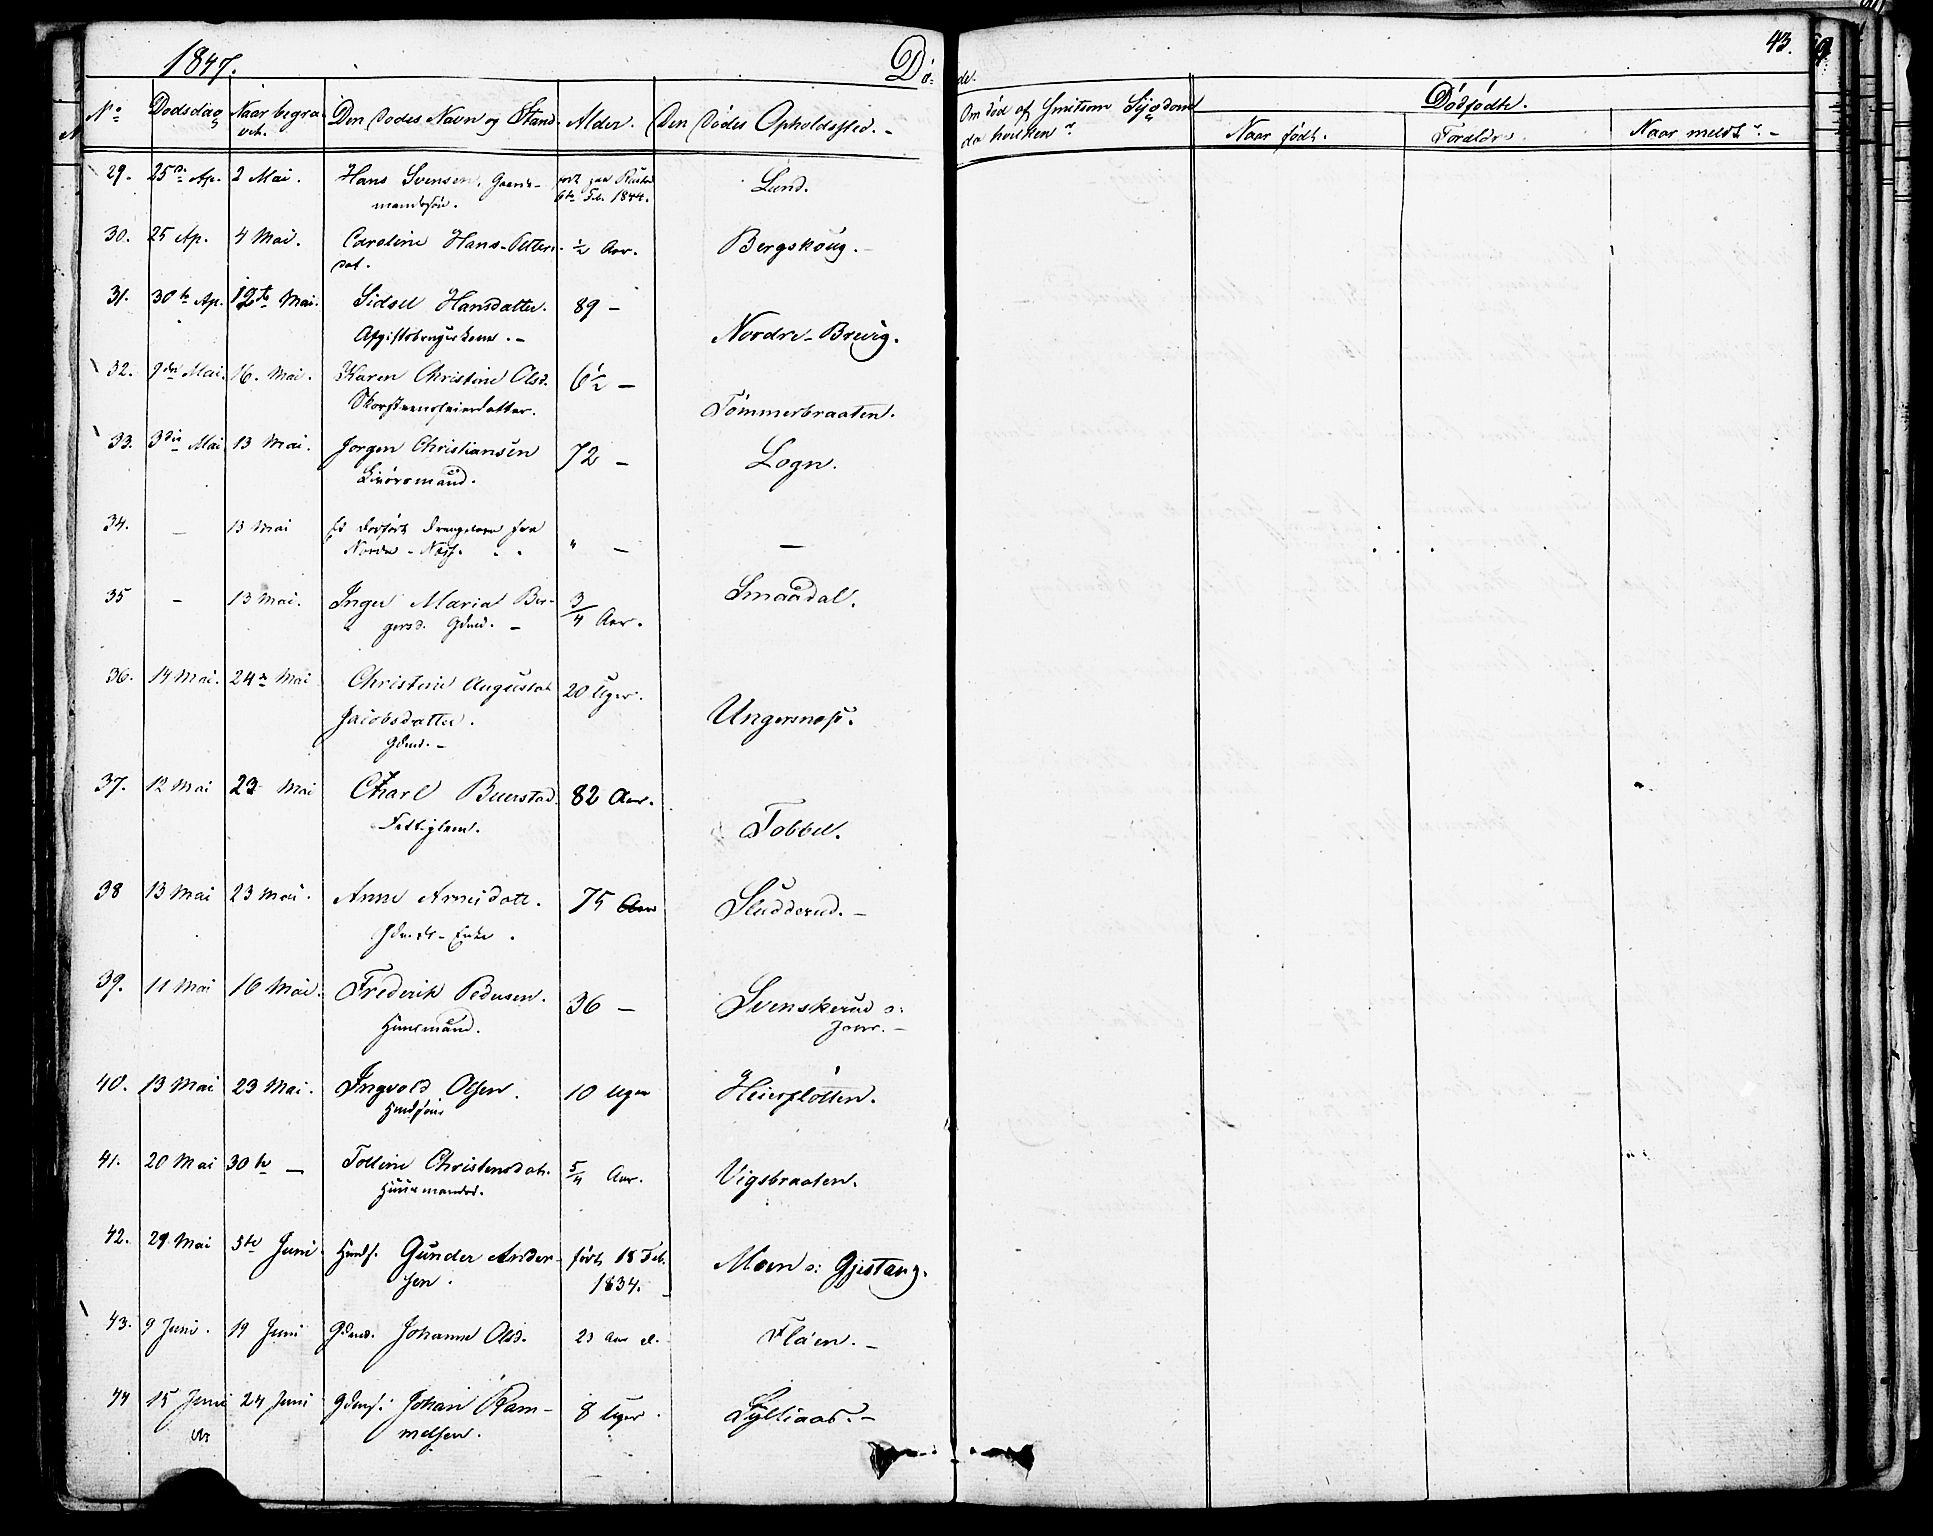 1847.
Dø-
de.
43.
No Dødsdag Naar begra- Den Dødes Navn og Stand. Alder. Den Dødes Opholdssted. - Om død af Smitsom Sygdom Dødfødte.
vet. da hvilken? Naar født. Forældre. Naar meldt. -
29. 25de Ap. 2 Mai. Hans Svensen, Gaard- født paa
mandssøn. 6te Feb. 1844. Lund.
30. 25 Ap. 4 Mai. Caroline Hans-Petters- ½ Aar. Bergskoug. -
dat.
31. 30te Ap. 12te Mai. Sidsel Hansdatter. 89 -
Nordre-Brevig.
32. 9de Mai. 16. Mai. Karen Christine Olsd. 6½ -
Skorsteensfeierdatter. Tømmerbraaten.
33. 3die Mai 13 Mai. Jørgen Christiansen 72 - Logn.
34. - 13 Mai Et dødfødt Drengebarn fra
Nordre - Næss. " - -
35 - 13 Mai. Inger Maria Ber- 3/4 Aar. Smaadal.
gersd. Gdmd. -
36. 14 Mai. 24de Mai Christine Augusta 20 Uger.
Jacobsdatter. Ungersness.
Gdmd. -
37. 12 Mai 23 Mai Charl Buerstad 82 Aar.
Fattiglem. Tobbel.
38 13 Mai 23 Mai. Anne Arnesdatt. 75 Aar Sludderud. -
Gdmds-Enke.
39. 11 Mai 16 Mai. Frederik Pedersen. 36 - Svenskerud o:
Huusmand. Jarer. -
40. 13 Mai 23 Mai. Ingvald Olsen. 10 Uger Heiersløtten.
Hmdsøn
41. 20 Mai 30te - Tolline Christensdat. 5/4 Aar. Vigsbraaten.
Huusmandsd.
42. 29 Mai 5te Juni. Hmds. Gunder Ander- født 18 Feb. Moen o: Gjestang.
sen. 1834.
43. 9 Juni. 19 Juni Gdmd. Johanne Olsd. 23 Aar Flåen. -
44 15 Juni 24 Juni Gdms. Johan Ram- 8 Uger. Syltiaas. -
melsen.